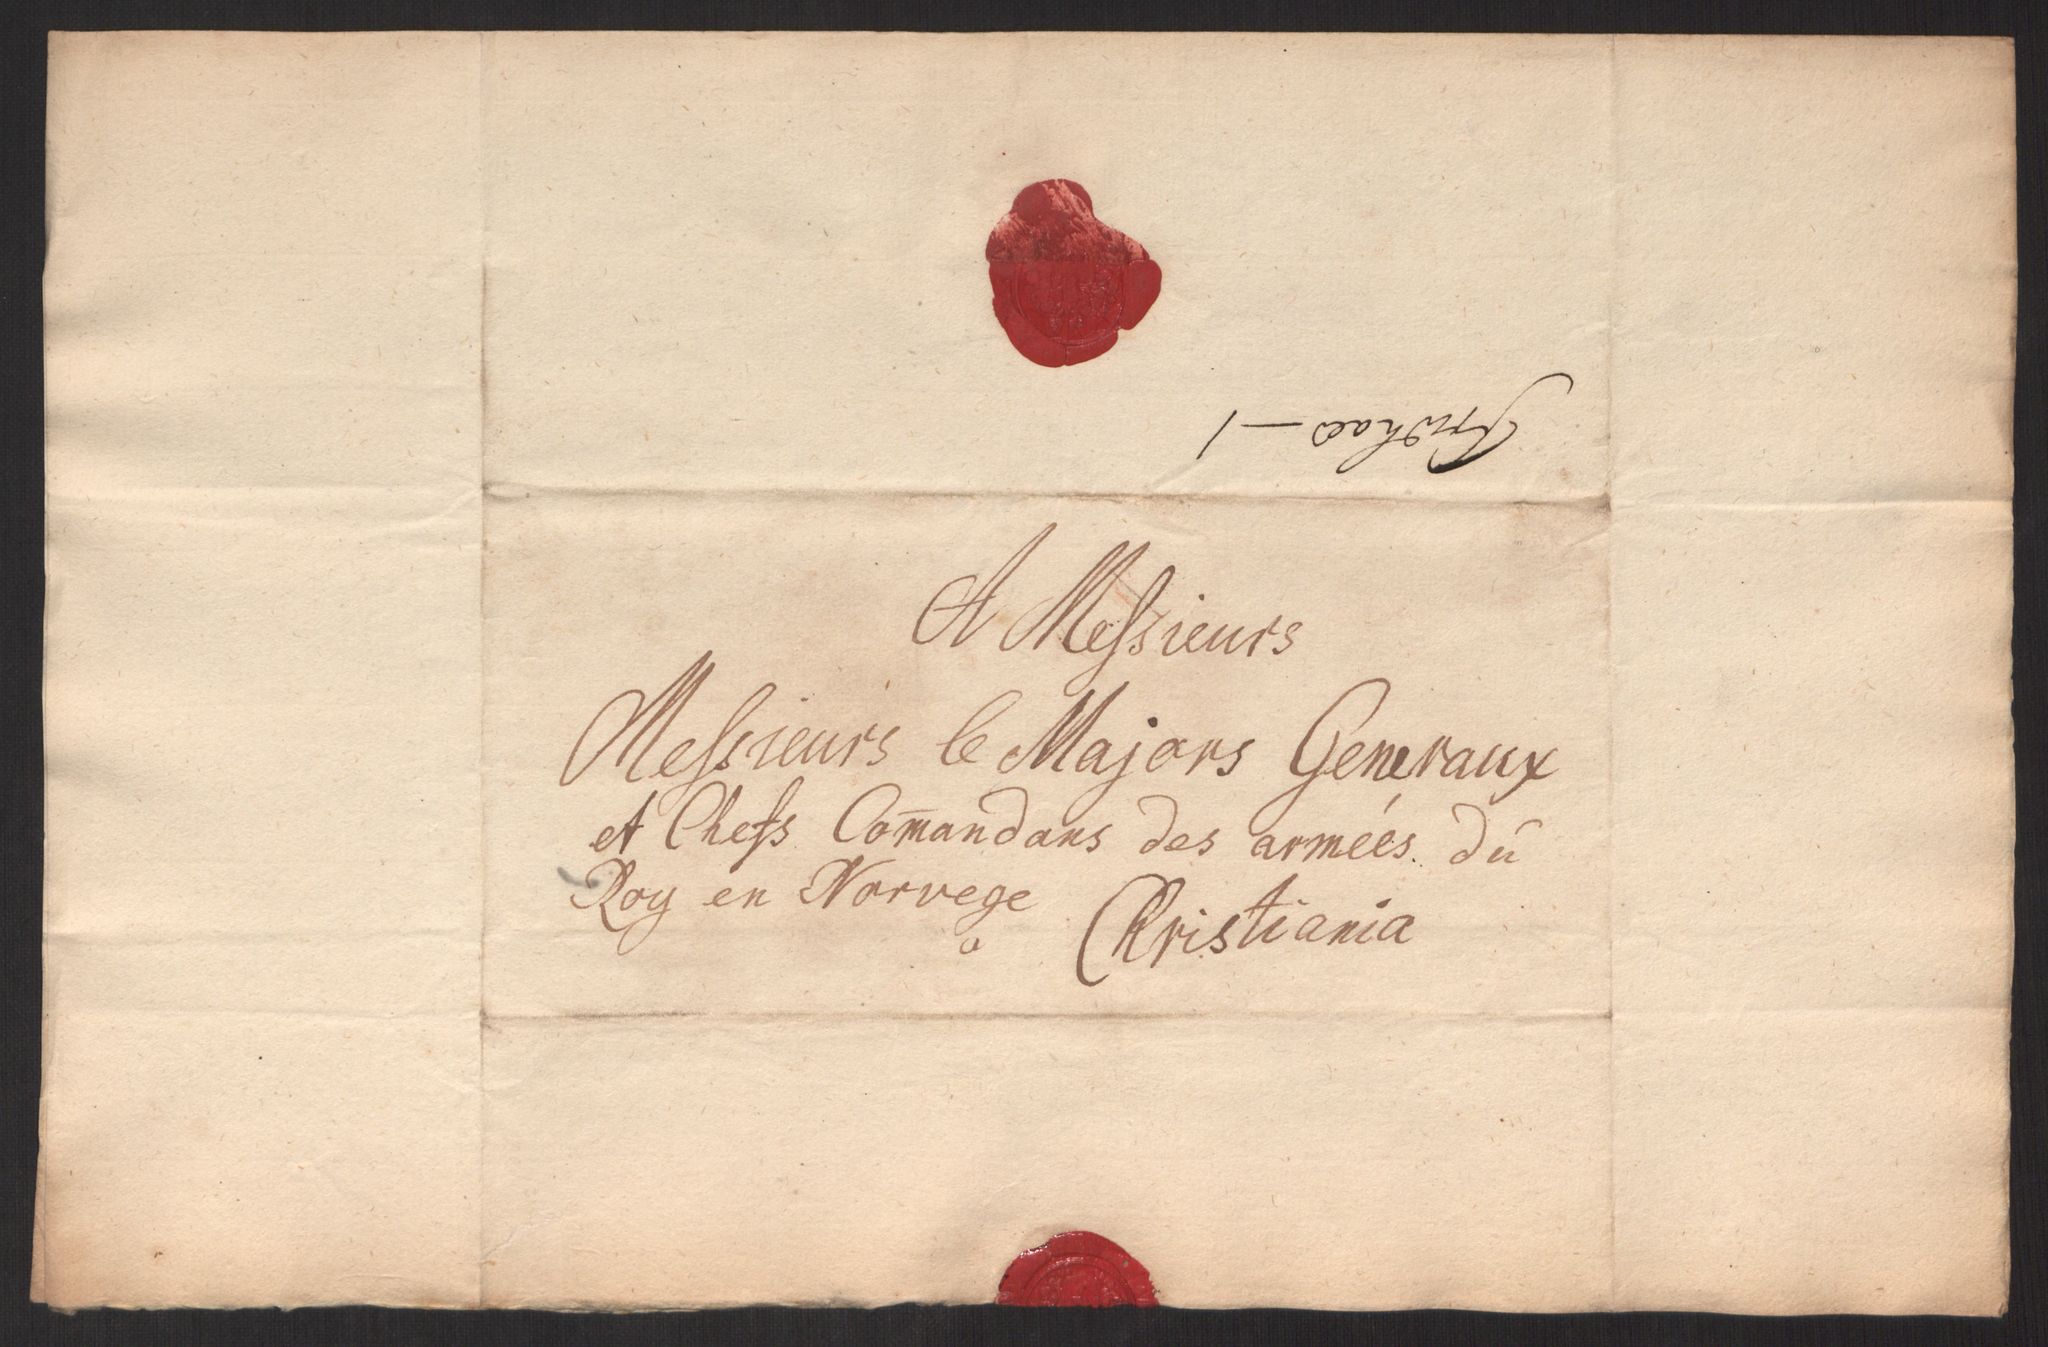 A Messieurs
Messieurs le Majors Generaux
et Chefs Com̄andans des armées du
Roy en Norvege
a Christiania